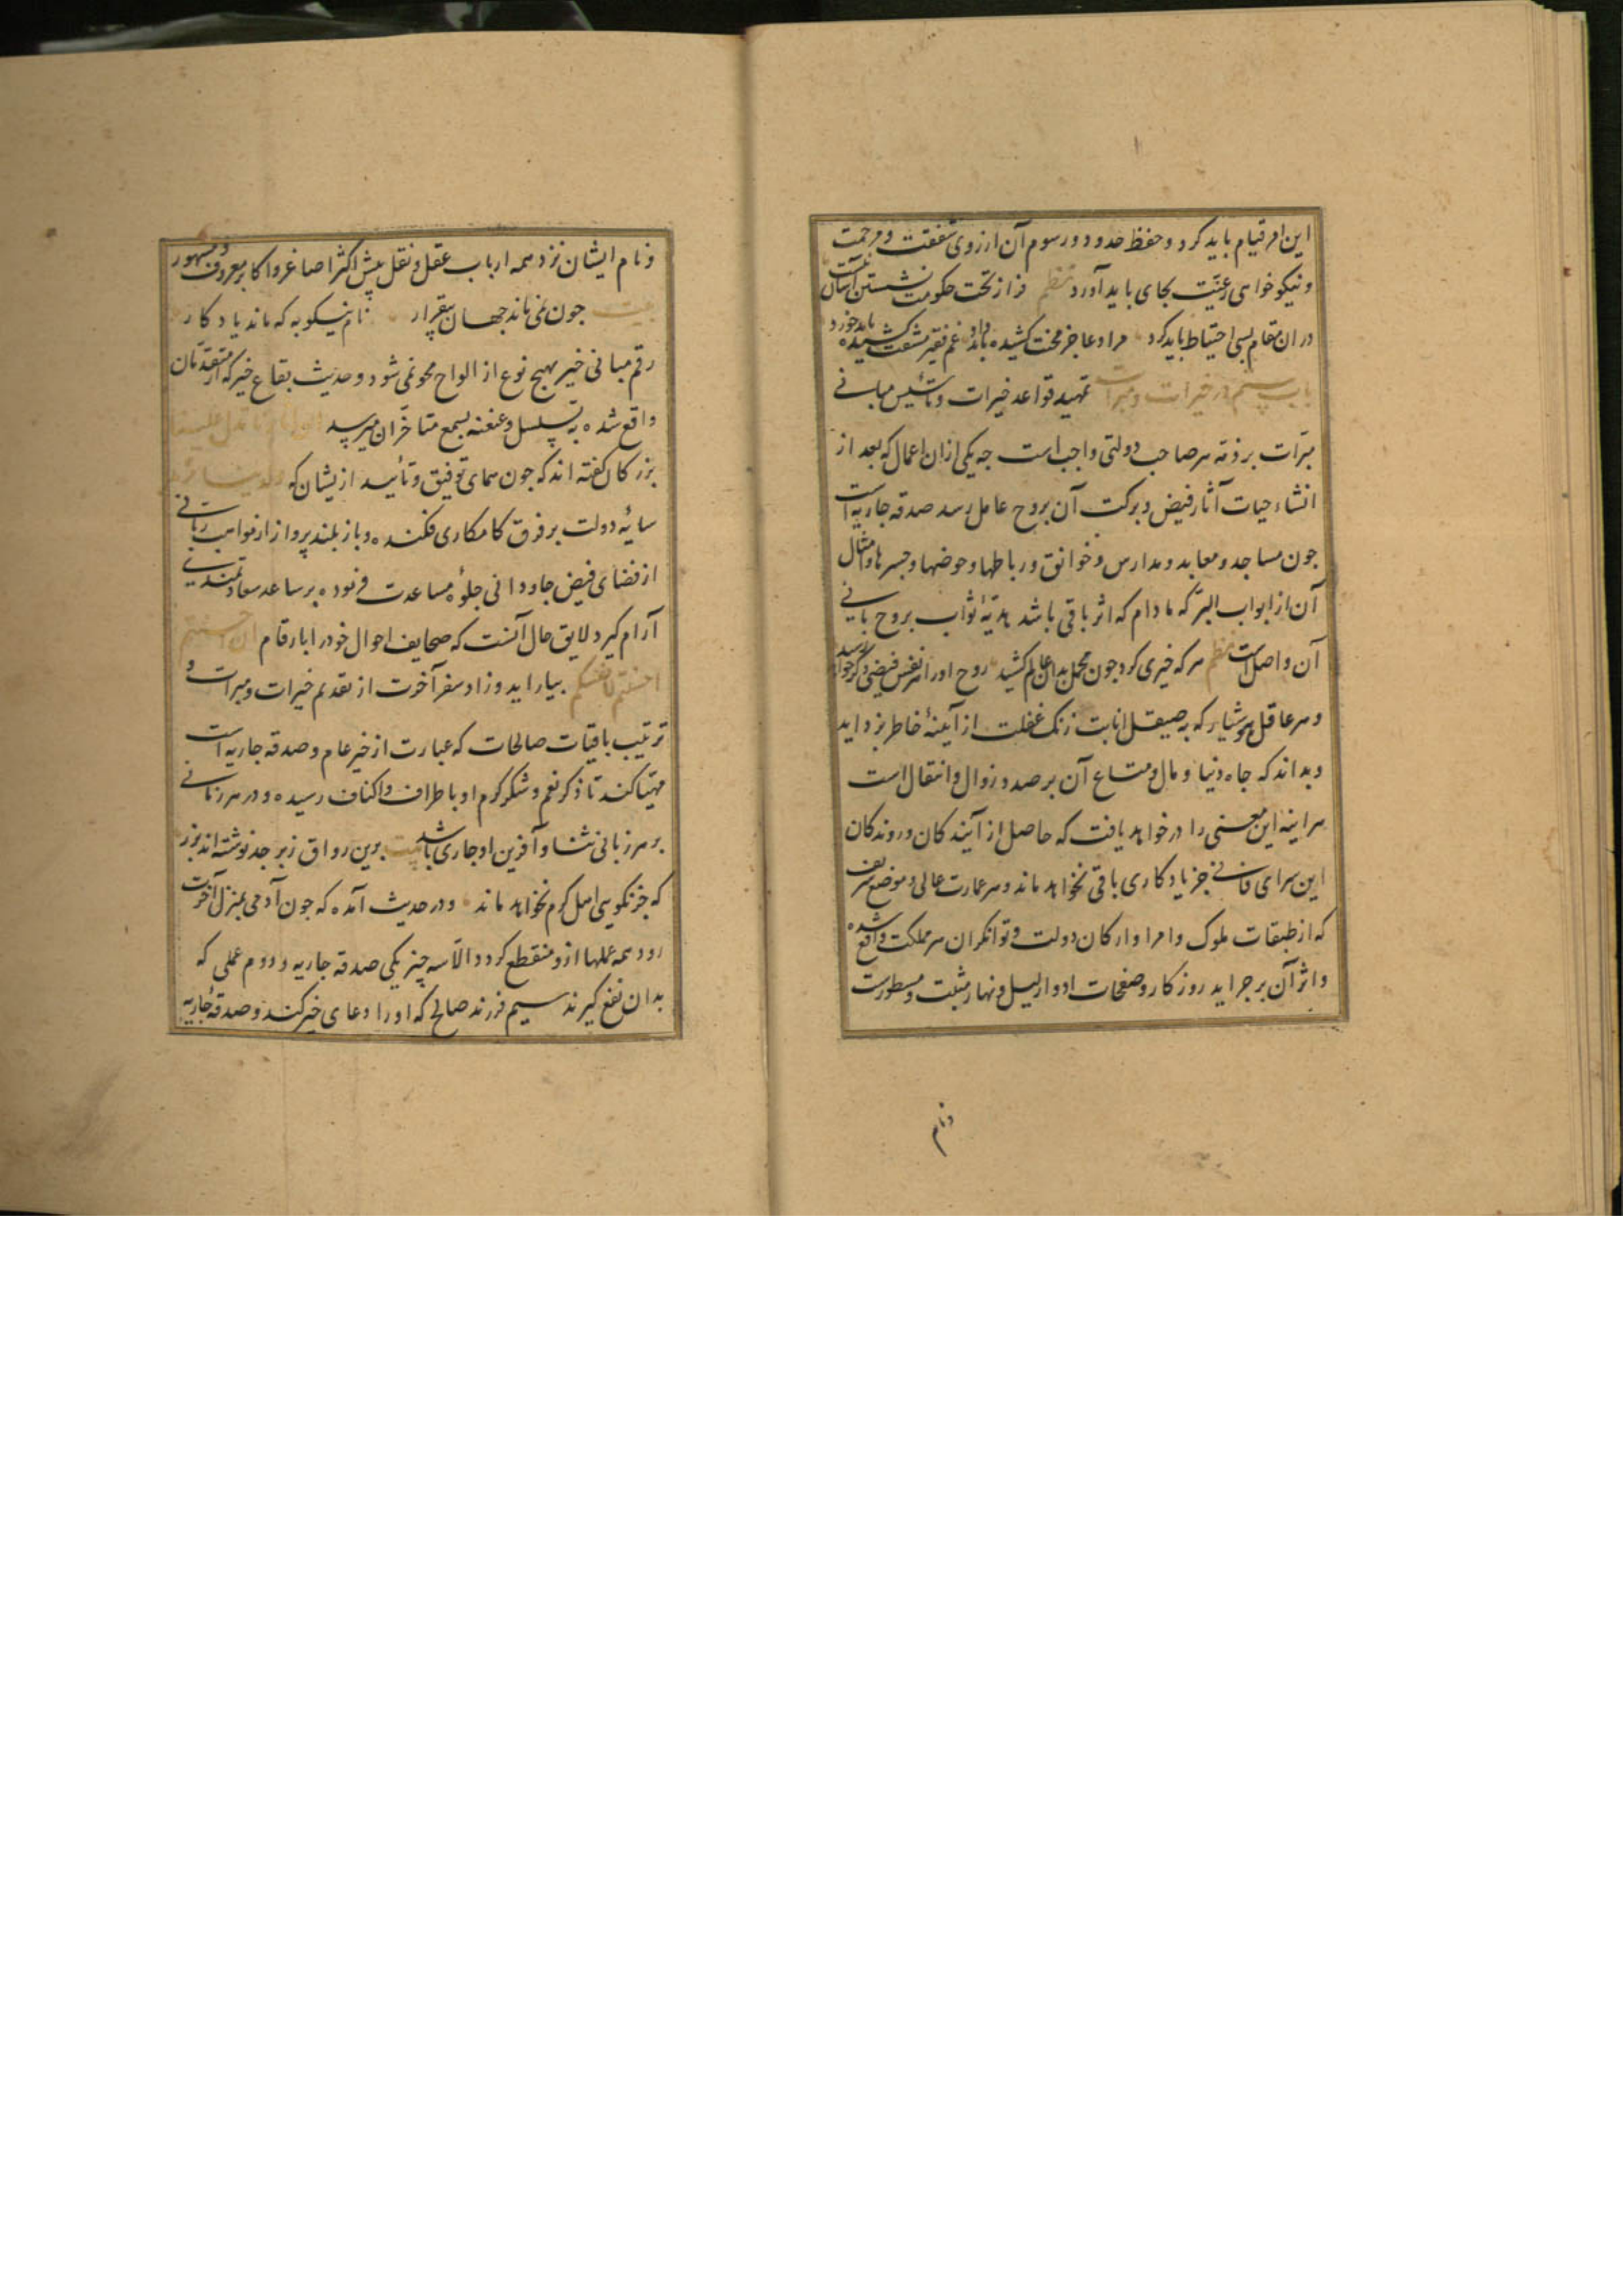 این امر قیام باید کرد و حفظ حدود و رسوم آن از روی شفقت و مرحمت
و نیکو خواهی رعیّت بجای باید آورد نظم فراز تخت حکومت نشستن آسان نیست
دران مقام بسی احتیاط باید کرد مراد عاجز محنت کشیده باید داد غم فقیر مشقت کشیده باید خورد
باب سیم در خیرات و مبرات تمهید قواعد خیرات و تأسیس مبانی
مبرّات بر ذمّه هر صاحب دولتی واجب است چه یکی از ان اعمال که بعد از
انشاء حیات آثار فیض و برکت آن بروح عامل رسد صدقه جاریه است
جون مساجد و معابد و مدارس و خوانق و رباطها و حوضها و جسرها و امثال
آن از ابواب البرّ که مادام که اثر باقی باشد هدیّهٔ ثواب بروح بانی
آن واصل است نظم هر که خیری کرد جون محمل بدان عالم کشید روح او را هر نفس فیضی دکر خواهد رسید
و هر عاقل هوشیار که بصیقل انابت زنک غفلت از آینهٔ خاطر بزداید
و بداند که جاه دنیا و مال و متاع آن بر صدد زوال و انتقال است
هر اینه این معنی را در خواهد یافت که حاصل از آیندکان و روندکان
این سرای فانی جز یادکاری باقی نخواهد ماند و هر عمارت عالی و موضع شریف
که از طبقات ملوک و امرا و ارکان دولت و توانکران هر مملکت واقع شده
و اثر آن بر جراید روزکار و صفحات ادوار لیل و نهار مثبت و مسطورست
و نام
و نام ایشان نزد همه ارباب عقل و نقل پیش اکثر اصاغر و اکابر معروف و مشهور
بیت جون نمی ماند جهان بیقرار نام نیکو به که ماند یادکار
رقم مبانی خیر بهیج نوع از الواح محو نمی شود و حدیث بقاع خیر که از متقدّمان
واقع شده به تسلسل و عنعنه بسمع متاخّران میرسد
بزرکان کفته اند که جون همای توفیق و تأیید از یشان که
سایهٔ دولت بر فرق کامکاری فکنده و باز بلند پرواز از مواهب ربّانی
از فضای فیض جاودانی جلوهٔ مساعدت فرموده بر ساعد سعادتمندی
آرام کیرد لایق حال آنست که صحایف احوال خود را بارقام ان احسنتم
احسنتم لانفسکم بیاراید و زاد سفر آخرت از تقدیم خیرات و مبرات و
ترتیب باقیات صالحات که عبارت از خیر عام و صدقه جاریه است
مهیّا کند تا ذکر نعم و شکر کرم او باطراف و اکناف رسیده و در هر زمانی
بر هر زبانی ثنا و آفرین او جاری باشد بیت برین رواق زبرجد نوشته اند بزر
که جز نکویی اهل کرم نخواهد ماند و در حدیث آمده که جون آدمی بمنزل آخرت
رود همه عملها ازو منقطع کردد الّا سه چیز یکی صدقه جاریه و دوم عملی که
بدان نفع کیرند سیم فرزند صالح که او را دعای خیر کند و صدقهٔ جاریه